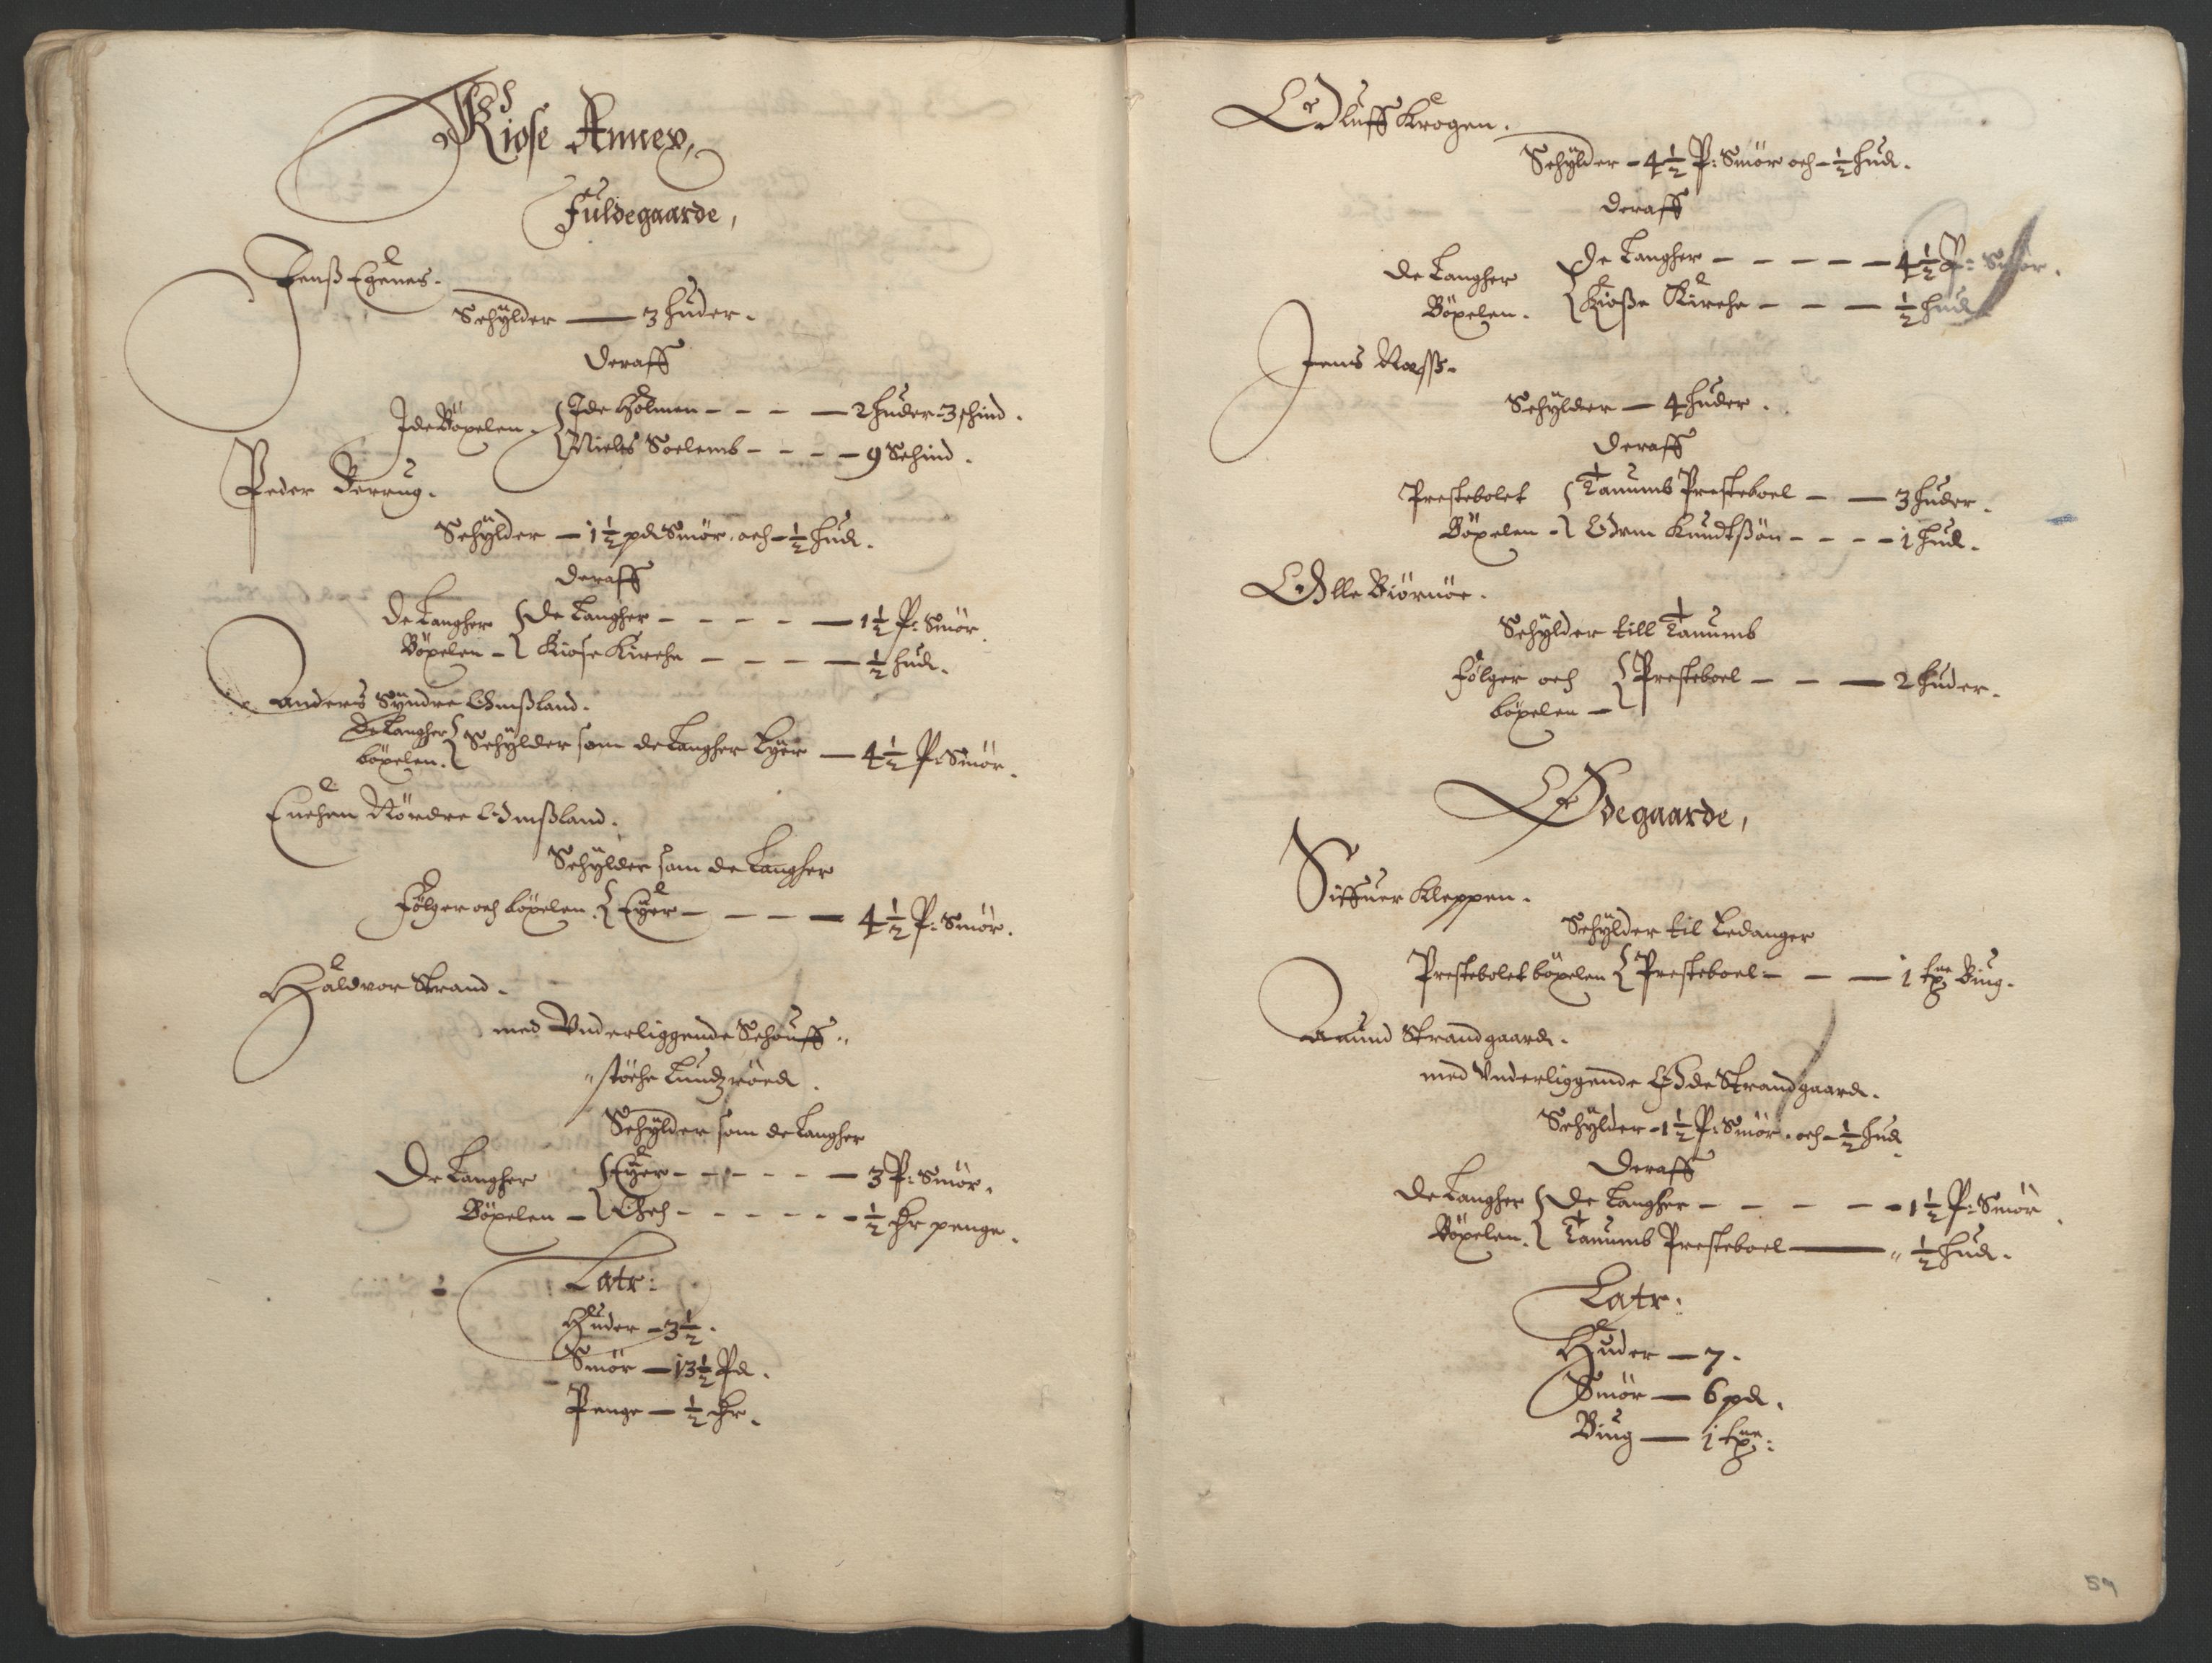 Kiose Annex,
Fuldegaarde,
Jenß Egenes.
Schÿlder — 3 huder.
Deraff
Jde Böxelen. { Jde Holmen - - - — 2 huder - 3 schind.
{ Niels Soelemb - - - — 9 Schind.
Peder Berrug.
Schÿlder — 1½ pd Smör. och - ½ hud.
Deraff
De Langher { De Langher - - - - — 1½ P: Smör
Böxelen - { Kiose Kirche - - - — ½ hud.
Anders Sÿndre Omßland.
De Langher { Schÿlder som de Langher Eÿer — 4½ P: Smör.
böxelen. {
Enchen Nördre Omßland.
Schÿlder som de Langher
Fölger och böxelen. { Eÿer - - - — 4½ P: Smör.
Haldvor Strand.
med Vnderliggende Schouff„
„stöche Lundzröed.
Schÿlder som de Langher
De Langher { Eÿer - - - - - — 3 P: Smör.
Böxelen - { Och - - - - - - ½ Ort penge.
Latr:
Huder - 3½.
Smör — 13½ Pd.
Penge — ½ Ort.
Oluff Krogen.
Schÿlder - 4½ P: Smör och - ½ hud.
Deraff
De Langher { De Langher - - - - — 4½ P: Smör.
Böxelen. { Kioße Kirche - - — ½ hud
Jens Næss.
Schÿlder — 4 huder.
Deraff
Prestebolet { Tanumb Presteboel - — 3 huder.
Böxelen - { Orm Knudtßön - - - - 1 hud.
Olle Biörnöe.
Schÿlder till Tanumb
Fölger och { Presteboel - - — 2 huder.
böxelen - {
Ödegaarde,
Siffuer Kleppen.
Schÿlder til Ledanger
Prestebolet böxelen { Presteboel - - — 1 tne Biug.
Amund Strandgaard.
med Vnderliggende Öde Strandgaard.
Schÿlder - 1½ P: Smör. och - ½ hud
Deraff
De Langher { De Langher - - - - - 1½ P: Smör
Böxelen. { Tanumb Presteboel — „ ½ hud.
Latr:
Huder — 7.
Smör — 6 pd.
Biug — 1 tne:
59